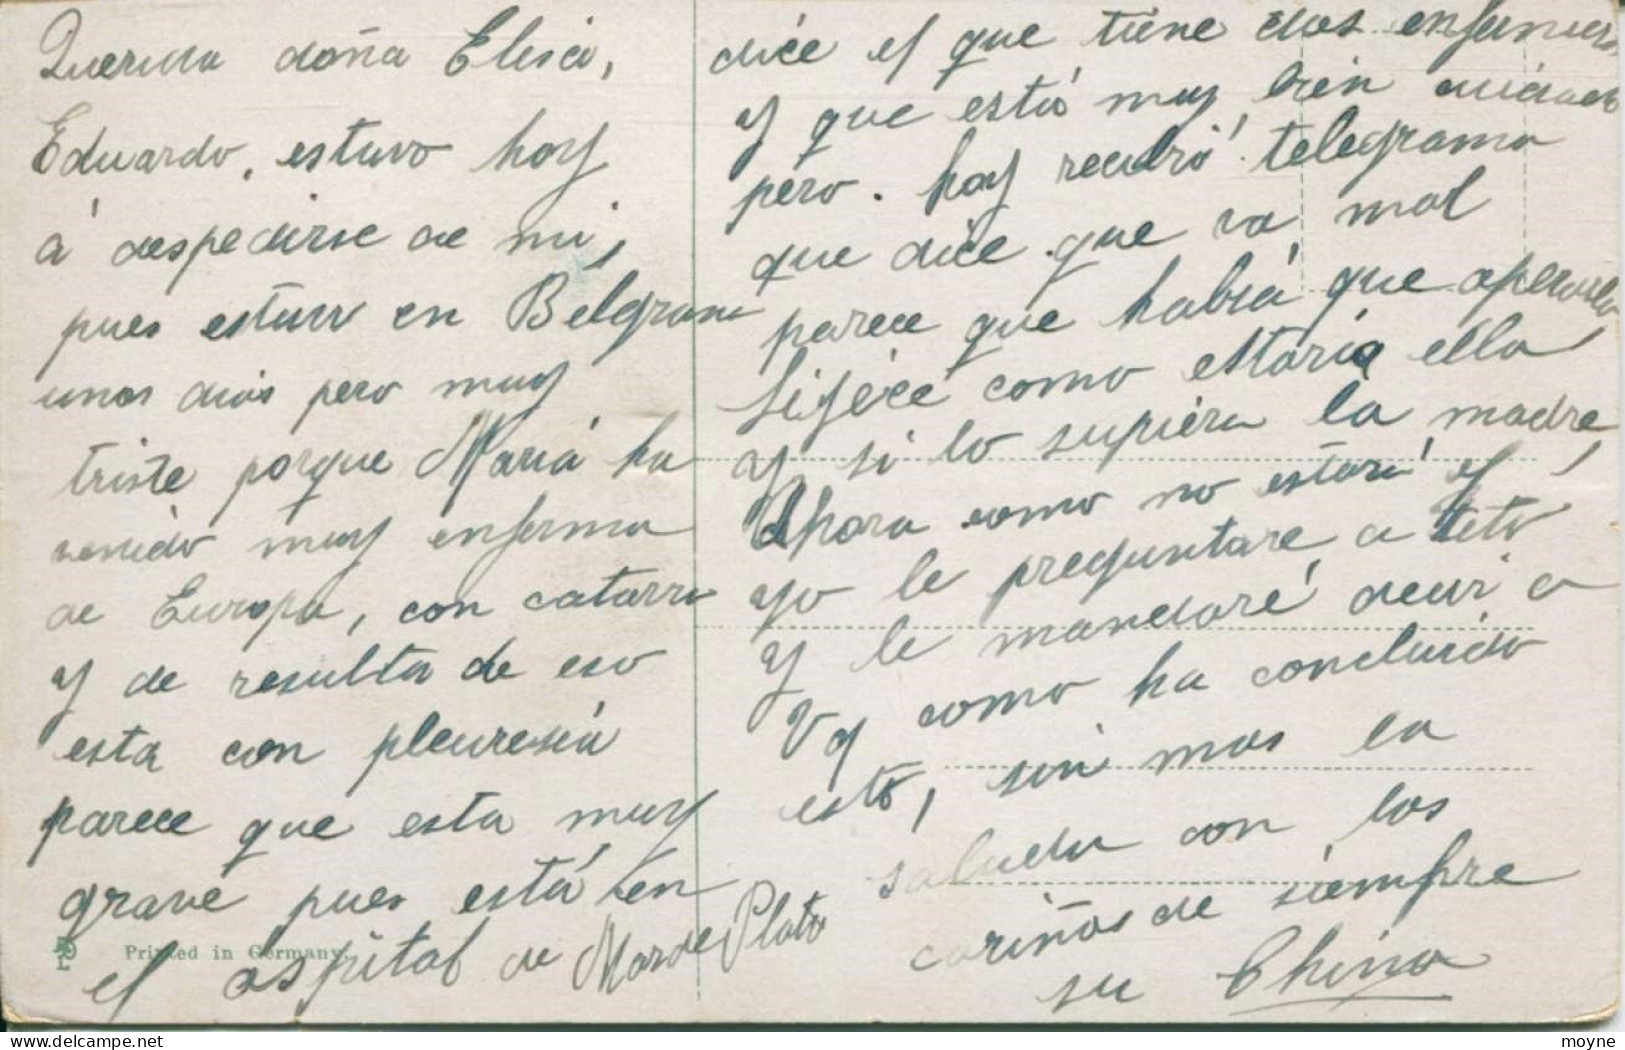 Querida doña Elisa,
Eduardo, estuvo hoy
á despedirse de mi,
pues estuvo en Belgrano
unos dias pero muy
triste porque Maria ha
venido muy enferma
de Europa, con catarro
y de resulta de eso
esta con pleuresia
parece que esta muy
grave pues está en
el ospital de Mar de Plata
Printed in Germany.
dice el que tiene dos enfermeras
y que está muy bien cuidada
pero. hoy recibió telegrama
que dice que va mal
parece que habia que operarla,
como estaria ella
y si lo supiera la madre,
Ahora como no estará el
yo le preguntare a Teto
y le mandaré decir a
Vd como ha concluido
esto, sin mas la
saluda con los
cariños de siempre
su China
moyne